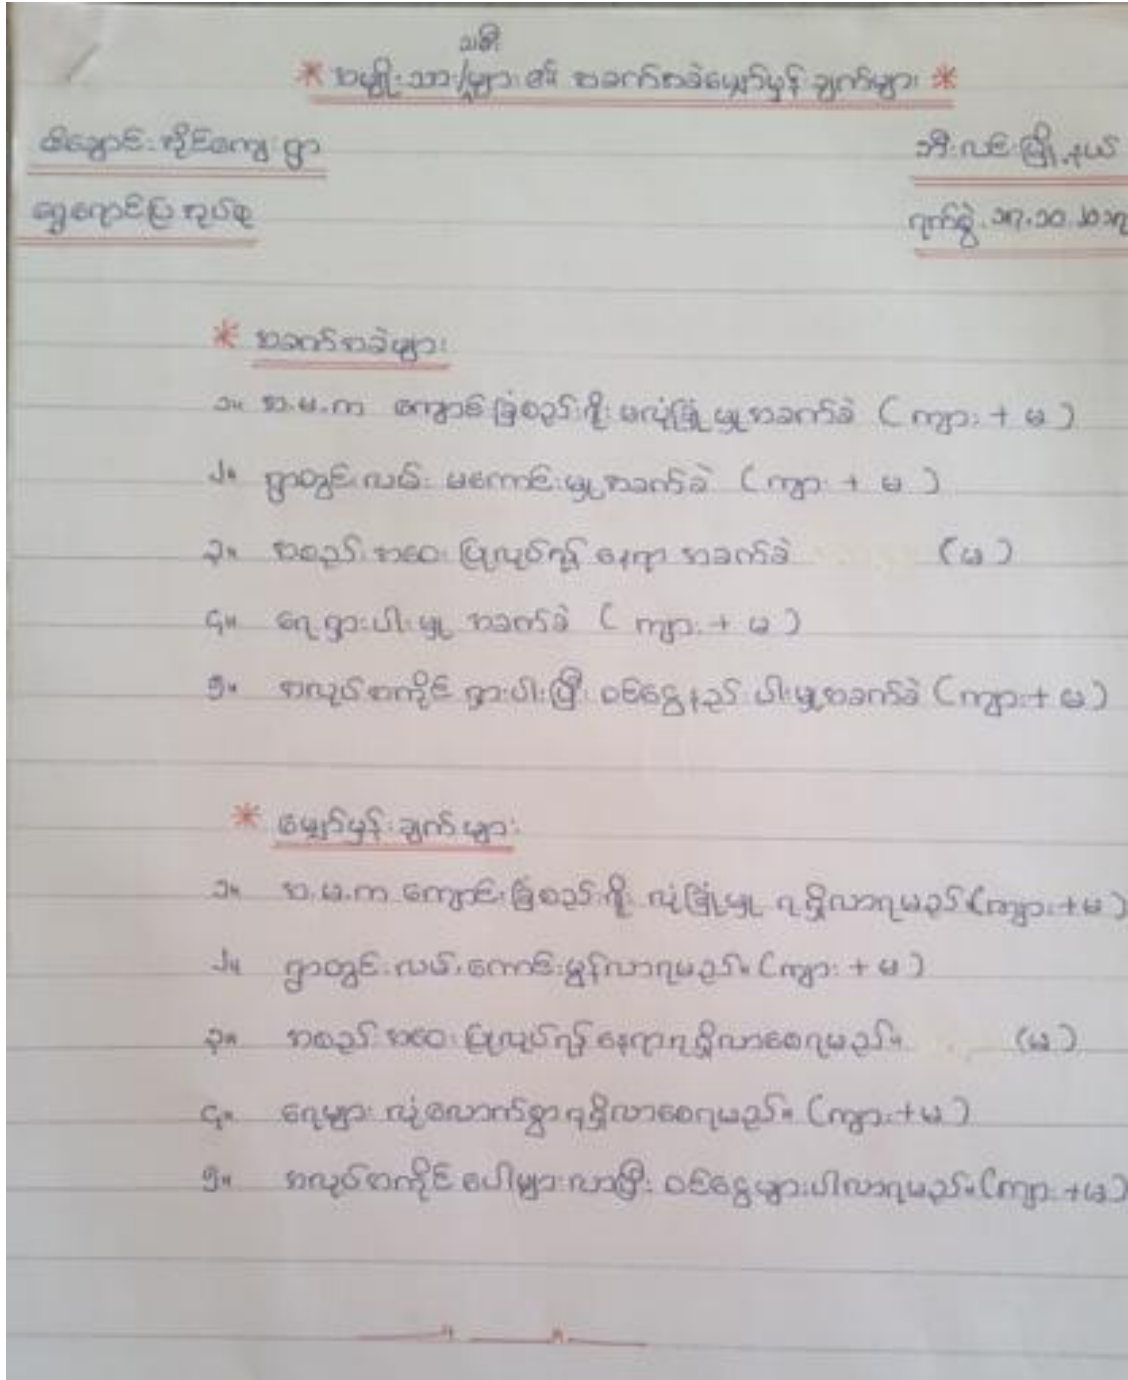 သမီး
* အမျိုးသား/များ ၏ အခက်အခဲမျှော်မှန်းချက်များ *
ထိချောင်းကိုင်ကျေးရွာ
ဘီးလင်းမြို့နယ်
ရွှေရောင်ပြအုပ်စု
ရက်စွဲ. ၁၇.၁၀.၂၀၁၇
* အခက်အခဲများ
၁။ အ.မ.က ကျောင်းခြံစည်းရိုး မလုံခြုံမှုအခက်ခဲ (ကျား + မ)
၂။ ရွာတွင်းလမ်း မကောင်းမှုအခက်ခဲ (ကျား + မ)
၃။ အစည်းအဝေးပြုလုပ်ရန် နေရာအခက်ခဲ (မ)
၄။ ရေရှားပါးမှု အခက်ခဲ (ကျား + မ)
၅။ အလုပ်အကိုင် ရှားပါးပြီး ဝင်ငွေနည်းပါးမှုအခက်ခဲ (ကျား + မ)
* မျှော်မှန်းချက်များ
၁။ အ.မ.က ကျောင်းခြံစည်းရိုး လုံခြုံမှု ရရှိလာရမည်။ (ကျား + မ)
၂။ ရွာတွင်းလမ်းကောင်းမွန်လာရမည်။ (ကျား + မ)
၃။ အစည်းအဝေးပြုလုပ်ရန် နေရာရရှိလာစေရမည်။ (မ)
၄။ ရေများ လုံလောက်စွာရရှိလာစေရမည်။ (ကျား + မ)
၅။ အလုပ်အကိုင် ပေါများလာပြီး ဝင်ငွေများပါလာရမည်။ (ကျား + မ)